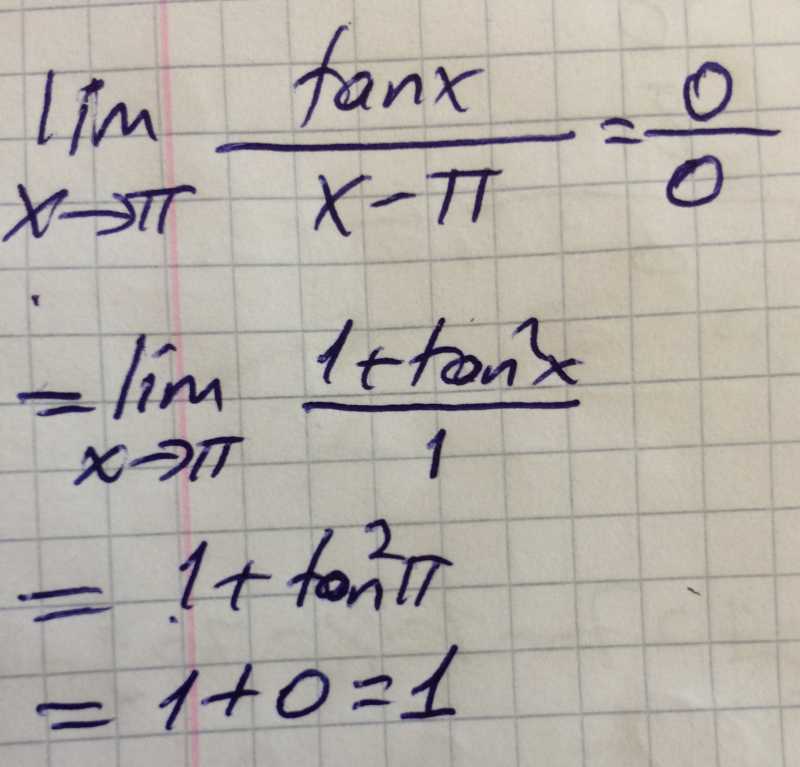 lim x→π tanx / x-π = 0/0
= lim x→π 1+tan²x / 1
= 1+tan²π
= 1+0=1